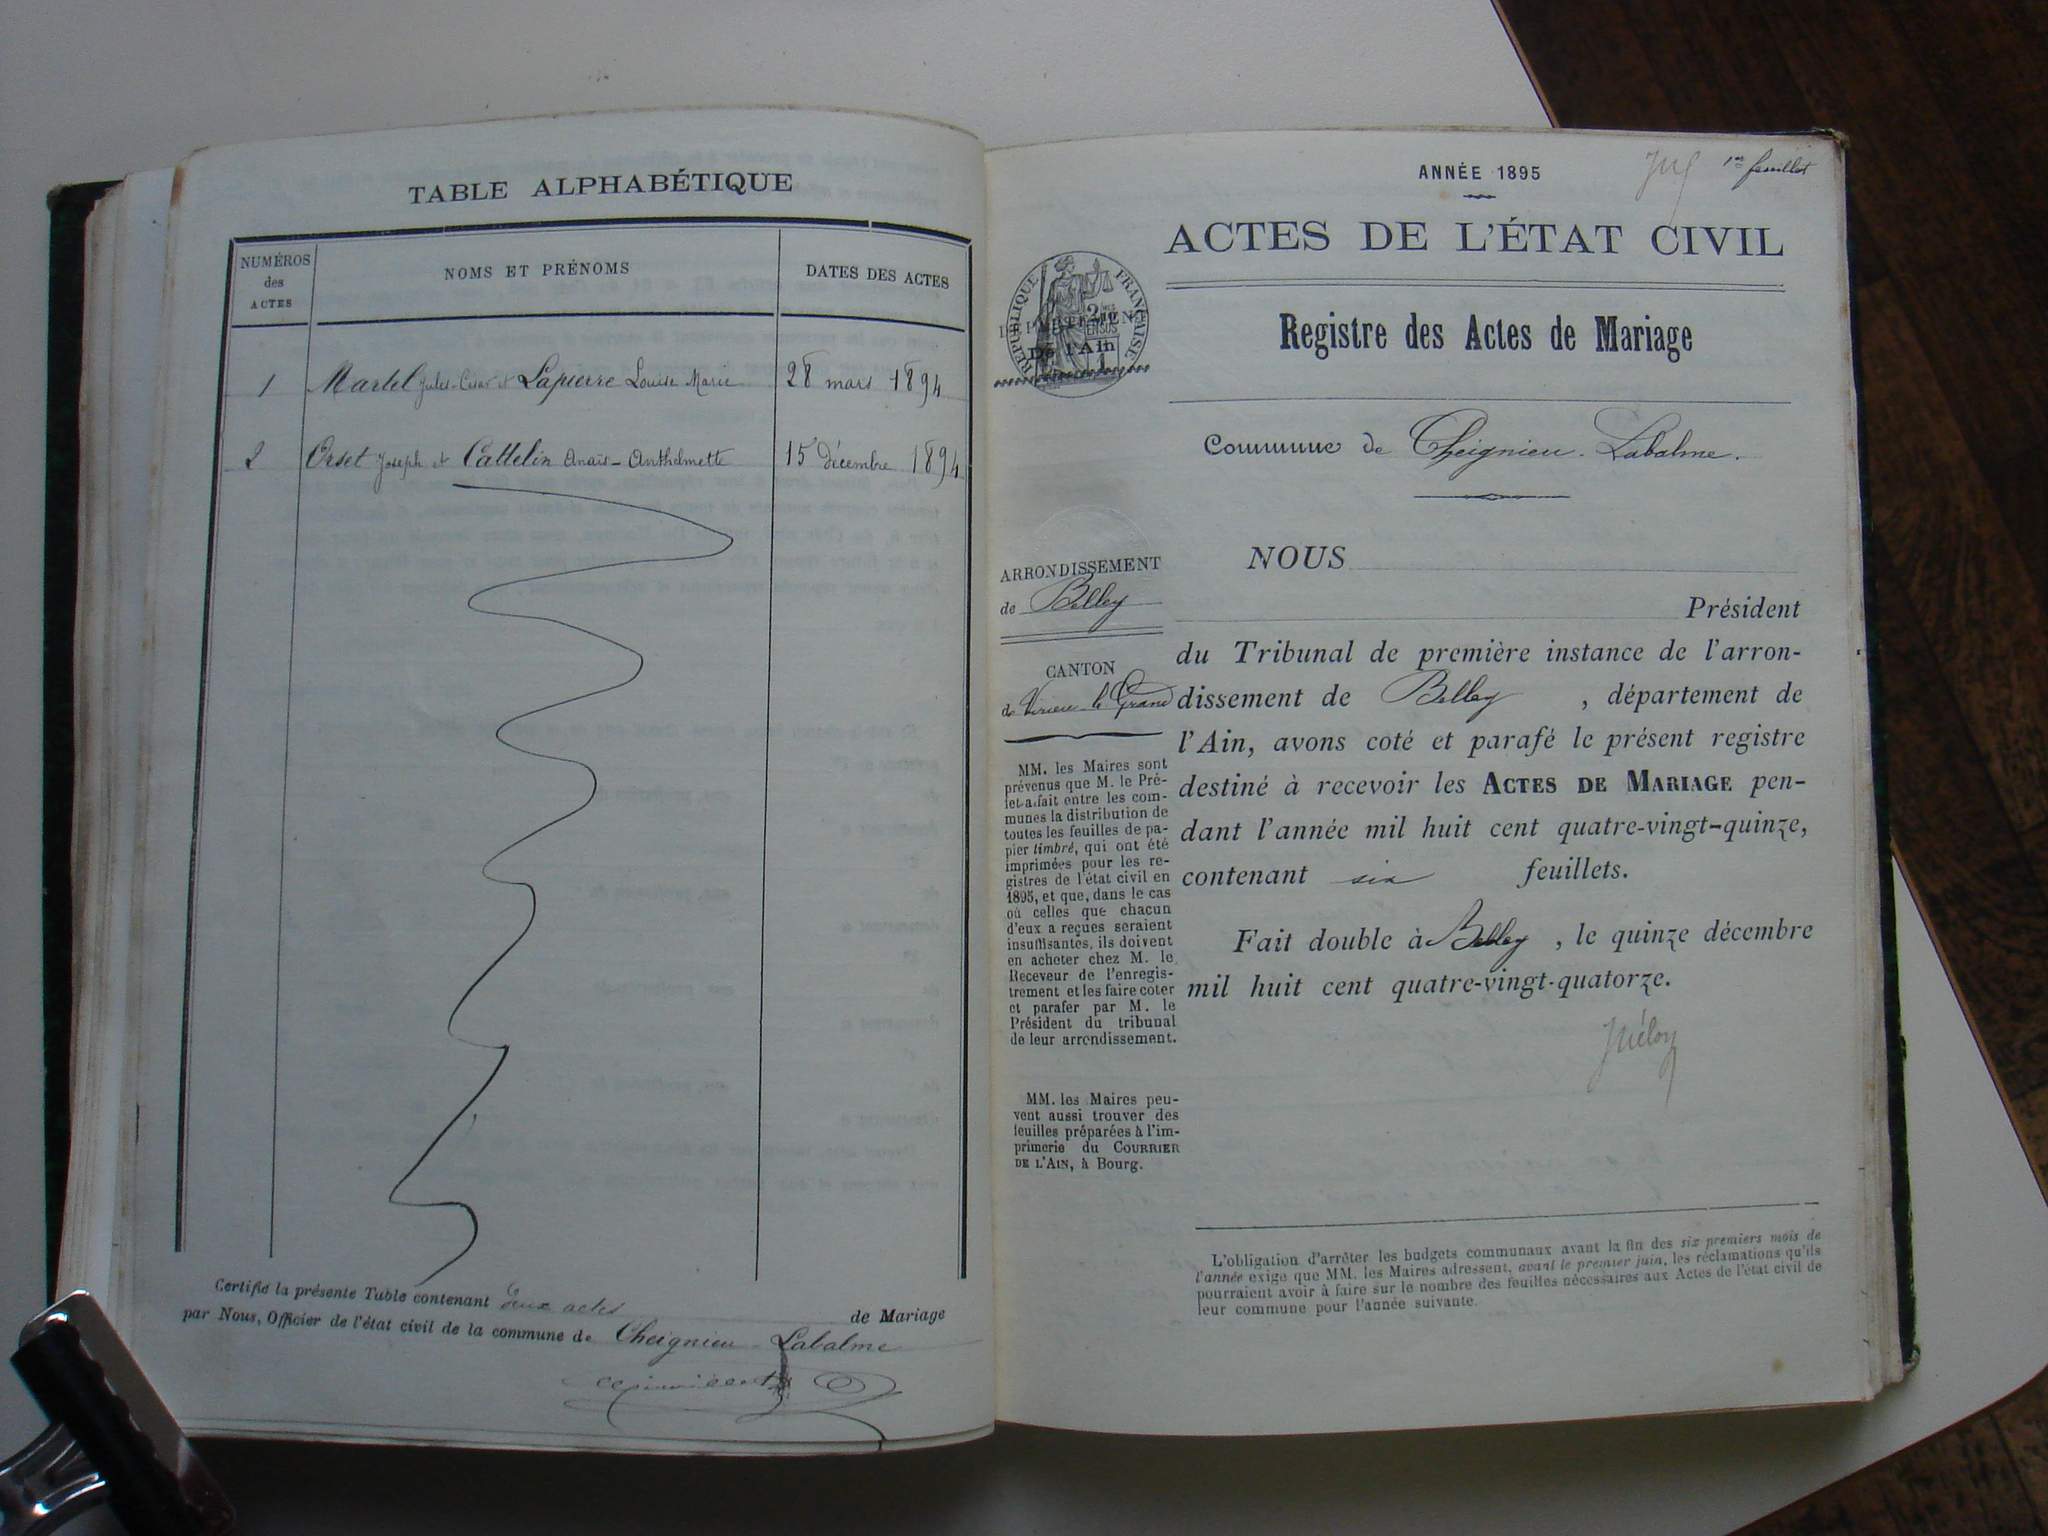 TABLE ALPHABÉTIQUE
NUMÉROS
des
ACTES
NOMS ET PRÉNOMS
DATES DES ACTES
1 Martel Jules-César et Lapierre Louise Marie 28 mars 1894
2 Orset Joseph et Cattelin Anaïs-Anthelmette 15 décembre 1894
Certifié la présente Table contenant deux actes de Mariage
par Nous, Officier de l'état civil de la commune de Cheignieu-Labalme
ANNÉE 1895
1er feuillet
ACTES DE L'ÉTAT CIVIL
RÉPUBLIQUE FRANÇAISE
De l'Ain
Registre des Actes de Mariage
Commune de Cheignieu-Labalme.
ARRONDISSEMENT
de Belley
CANTON
de Virieu-le-Grand
MM. les Maires sont
prévenus que M. le Pré-
fet a fait entre les com-
munes la distribution de
toutes les feuilles de pa-
pier timbré, qui ont été
imprimées pour les re-
gistres de l'état civil en
1895, et que, dans le cas
où celles que chacun
d'eux a reçues seraient
insuffisantes, ils doivent
en acheter chez M. le
Receveur de l'enregis-
trement et les faire coter
et parafer par M. le
Président du tribunal
de leur arrondissement.
MM. les Maires peu-
vent aussi trouver des
feuilles préparées à l'im-
primerie du COURRIER
DE L'AIN, à Bourg.
NOUS
Président
du Tribunal de première instance de l'arron-
dissement de Belley, département de
l'Ain, avons coté et parafé le présent registre
destiné à recevoir les ACTES DE MARIAGE pen-
dant l'année mil huit cent quatre-vingt-quinze,
contenant six feuillets.
Fait double à Belley, le quinze décembre
mil huit cent quatre-vingt-quatorze.
L'obligation d'arrêter les budgets communaux avant la fin des six premiers mois de
l'année exige que MM. les Maires adressent, avant le premier juin, les réclamations qu'ils
pourraient avoir à faire sur le nombre des feuilles nécessaires aux Actes de l'état civil de
leur commune pour l'année suivante.